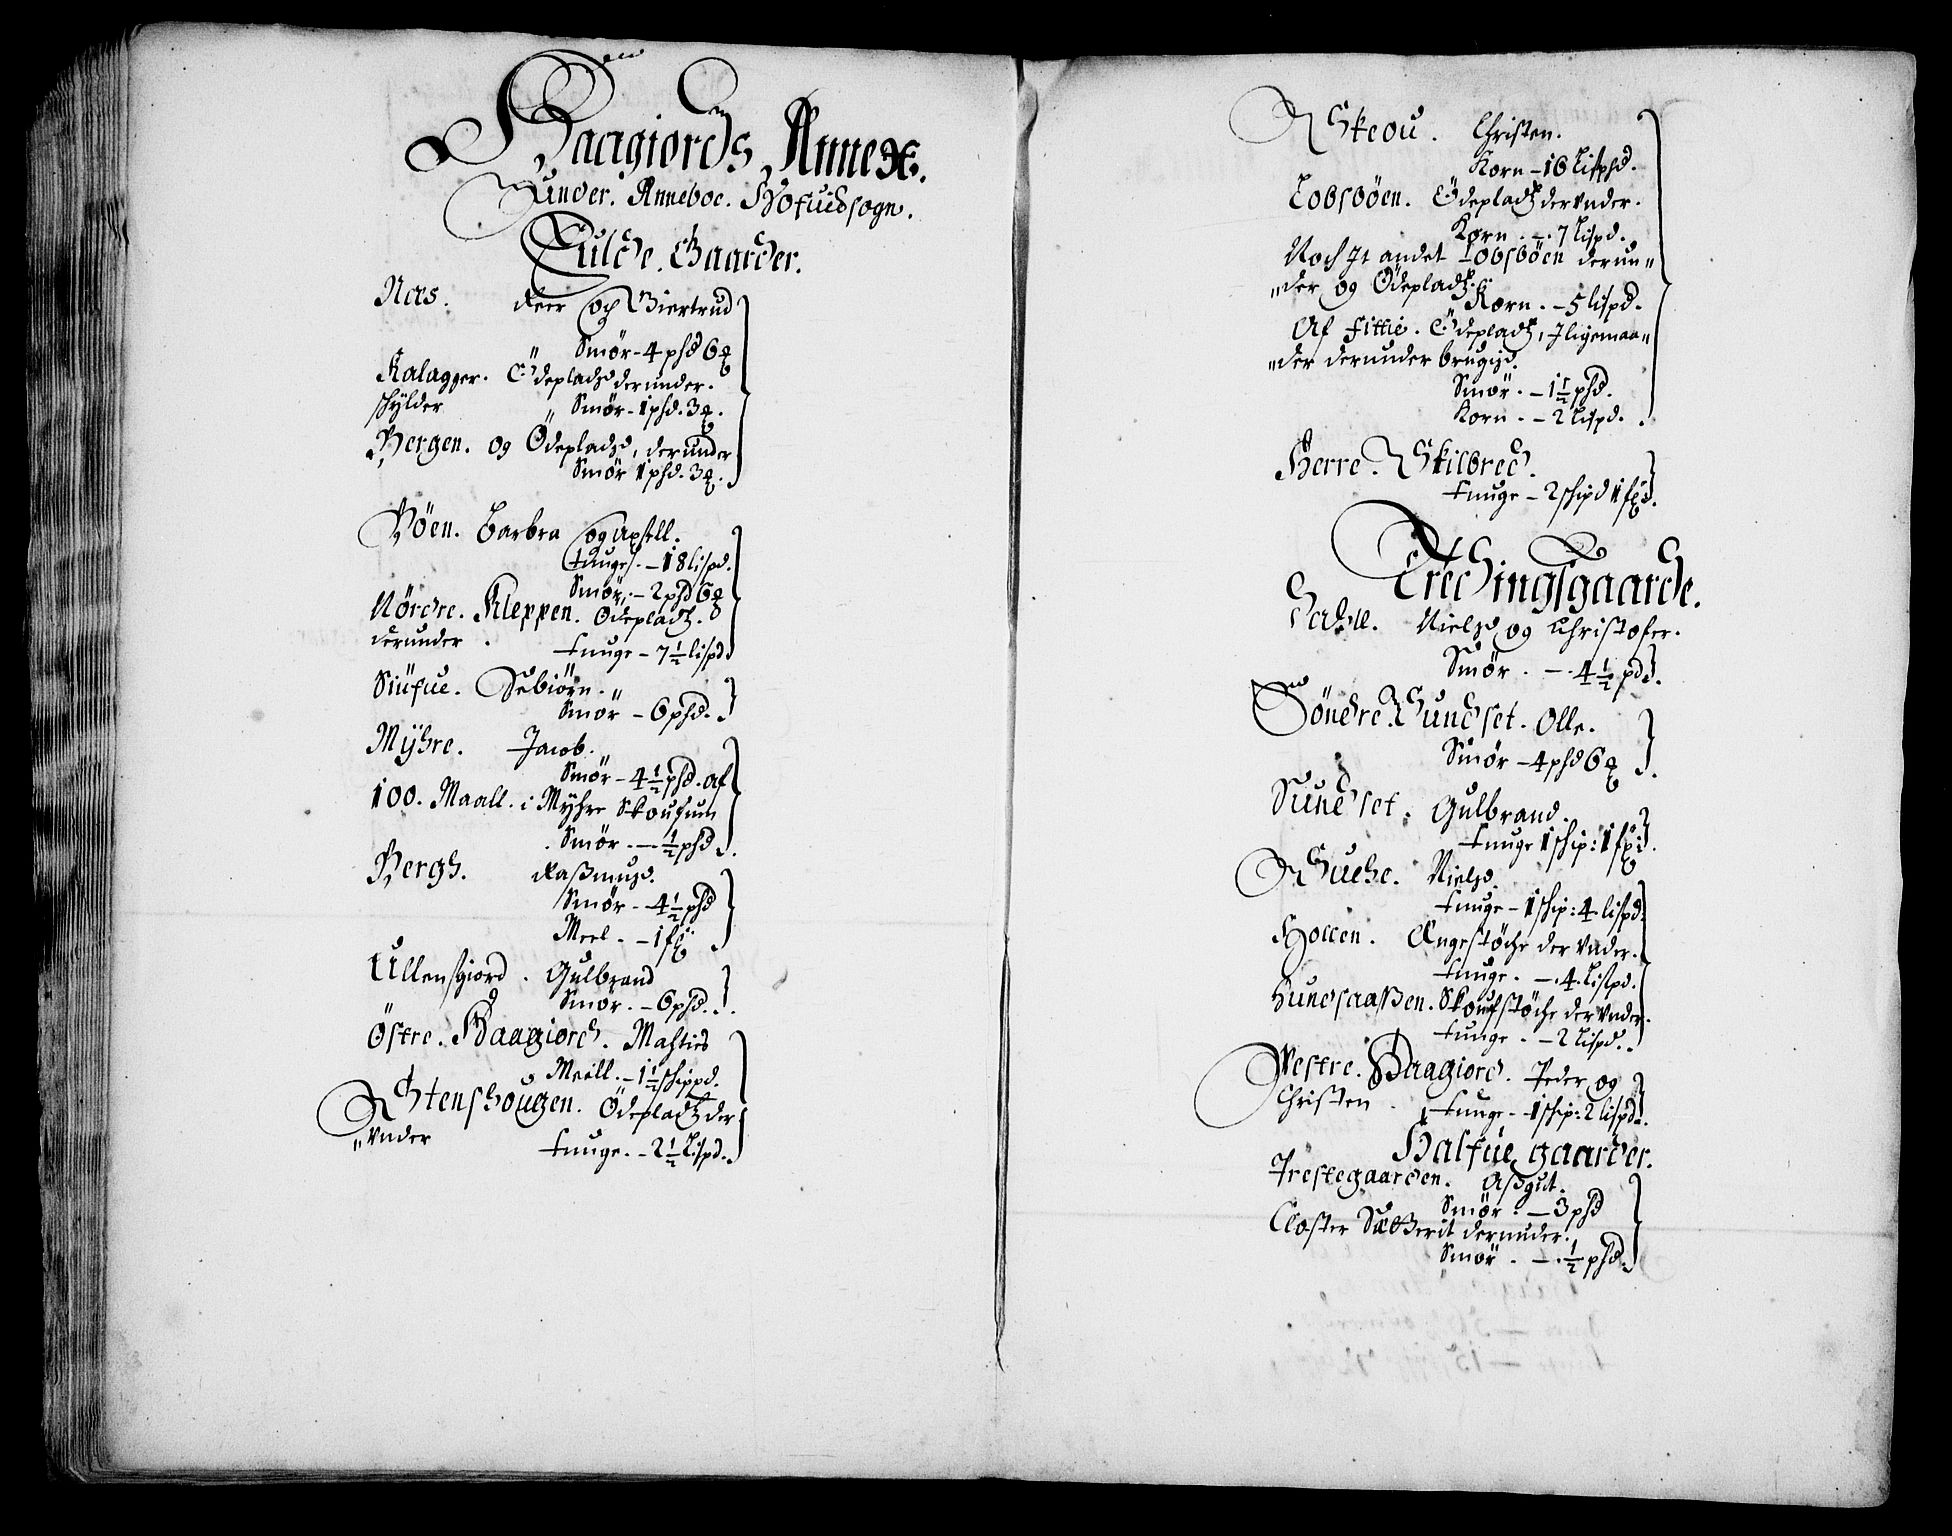 Haagiords Annex.
Under. Anneboe. Hofuidsogn.
Fulde. Gaarder.
Næs. Peer och Giertrud
Smör - 4 phd 6 ℔
Kalager. Ödepladzs derunder.
schylder Smör - 1 phd. 3 ℔.
Bergen. og Ödepladzs, derunder
Smör 1 phd. 3 ℔.
Böen. Barbra og Axell.
tunge. - 18 lispd.
Smör - 2 phd 6 ℔
Nördre. Kleppen. Ödepladtz.
derunder. tunge - 7 ½ lispd.
Siüfue. Sebiörn.
Smör - 6 phd.
Myhre. Jacob.
Smör - 4 ½ phd. af
100. Maall. i Myhre Skoufum
Smör. - ½ phd.
Bergh. Rasmuss.
Smör - 4 ½ phd
Meel. - 1 f℔
Ullensgiord. Gulbrand
Smör. - 6 phd.
Östre. Haagiord. Mathies
Meell. - 1 ½ schippd.
Stenshougen. Ödepladtz der
"vnder tunge. - 2 ½ Lispd.
Skou. Christen.
Korn - 16 Lisphd.
Lobsböen. Ödepladtz der vnder.
Korn. - 7 lispd.
Noch It andet Lobsböen derun"
"der og Ödepladtz.
Korn. - 5 lispd.
Af fittie. Ödepladtz, Iligemaa"
"der derunder brugis.
Smör. - 1 ½ phd.
Korn. - 2 Lispd.
Herre. Skilbred.
tunge - 2 schipd 1 f℔.
Tredingsgaarde.
Nielss og Christofer.
Smör. - 4 ½ pd.
Söndre. Sundset. Olle.
Smör - 4 phd 6 ℔
Sundset. Gulbrand.
tunge 1 schip: 1 f℔.
Huehe. Nielss.
tunge - 1 schip: 4 lispd.
Holten. Engestöche der vnder.
tunge. - 4. Lispd.
Hundsaassen. Skoufstöche der vnder.
tunge. - 2 Lispd.
Vestre. Haagiord. Peder og
Christen. tunge - 1 schip: 2 lispd.
Halfue gaarder.
Prestegaarden. Assgut.
Smör. - 3 phd
Closter Sætterit derunder.
Smör. - ½ phd.